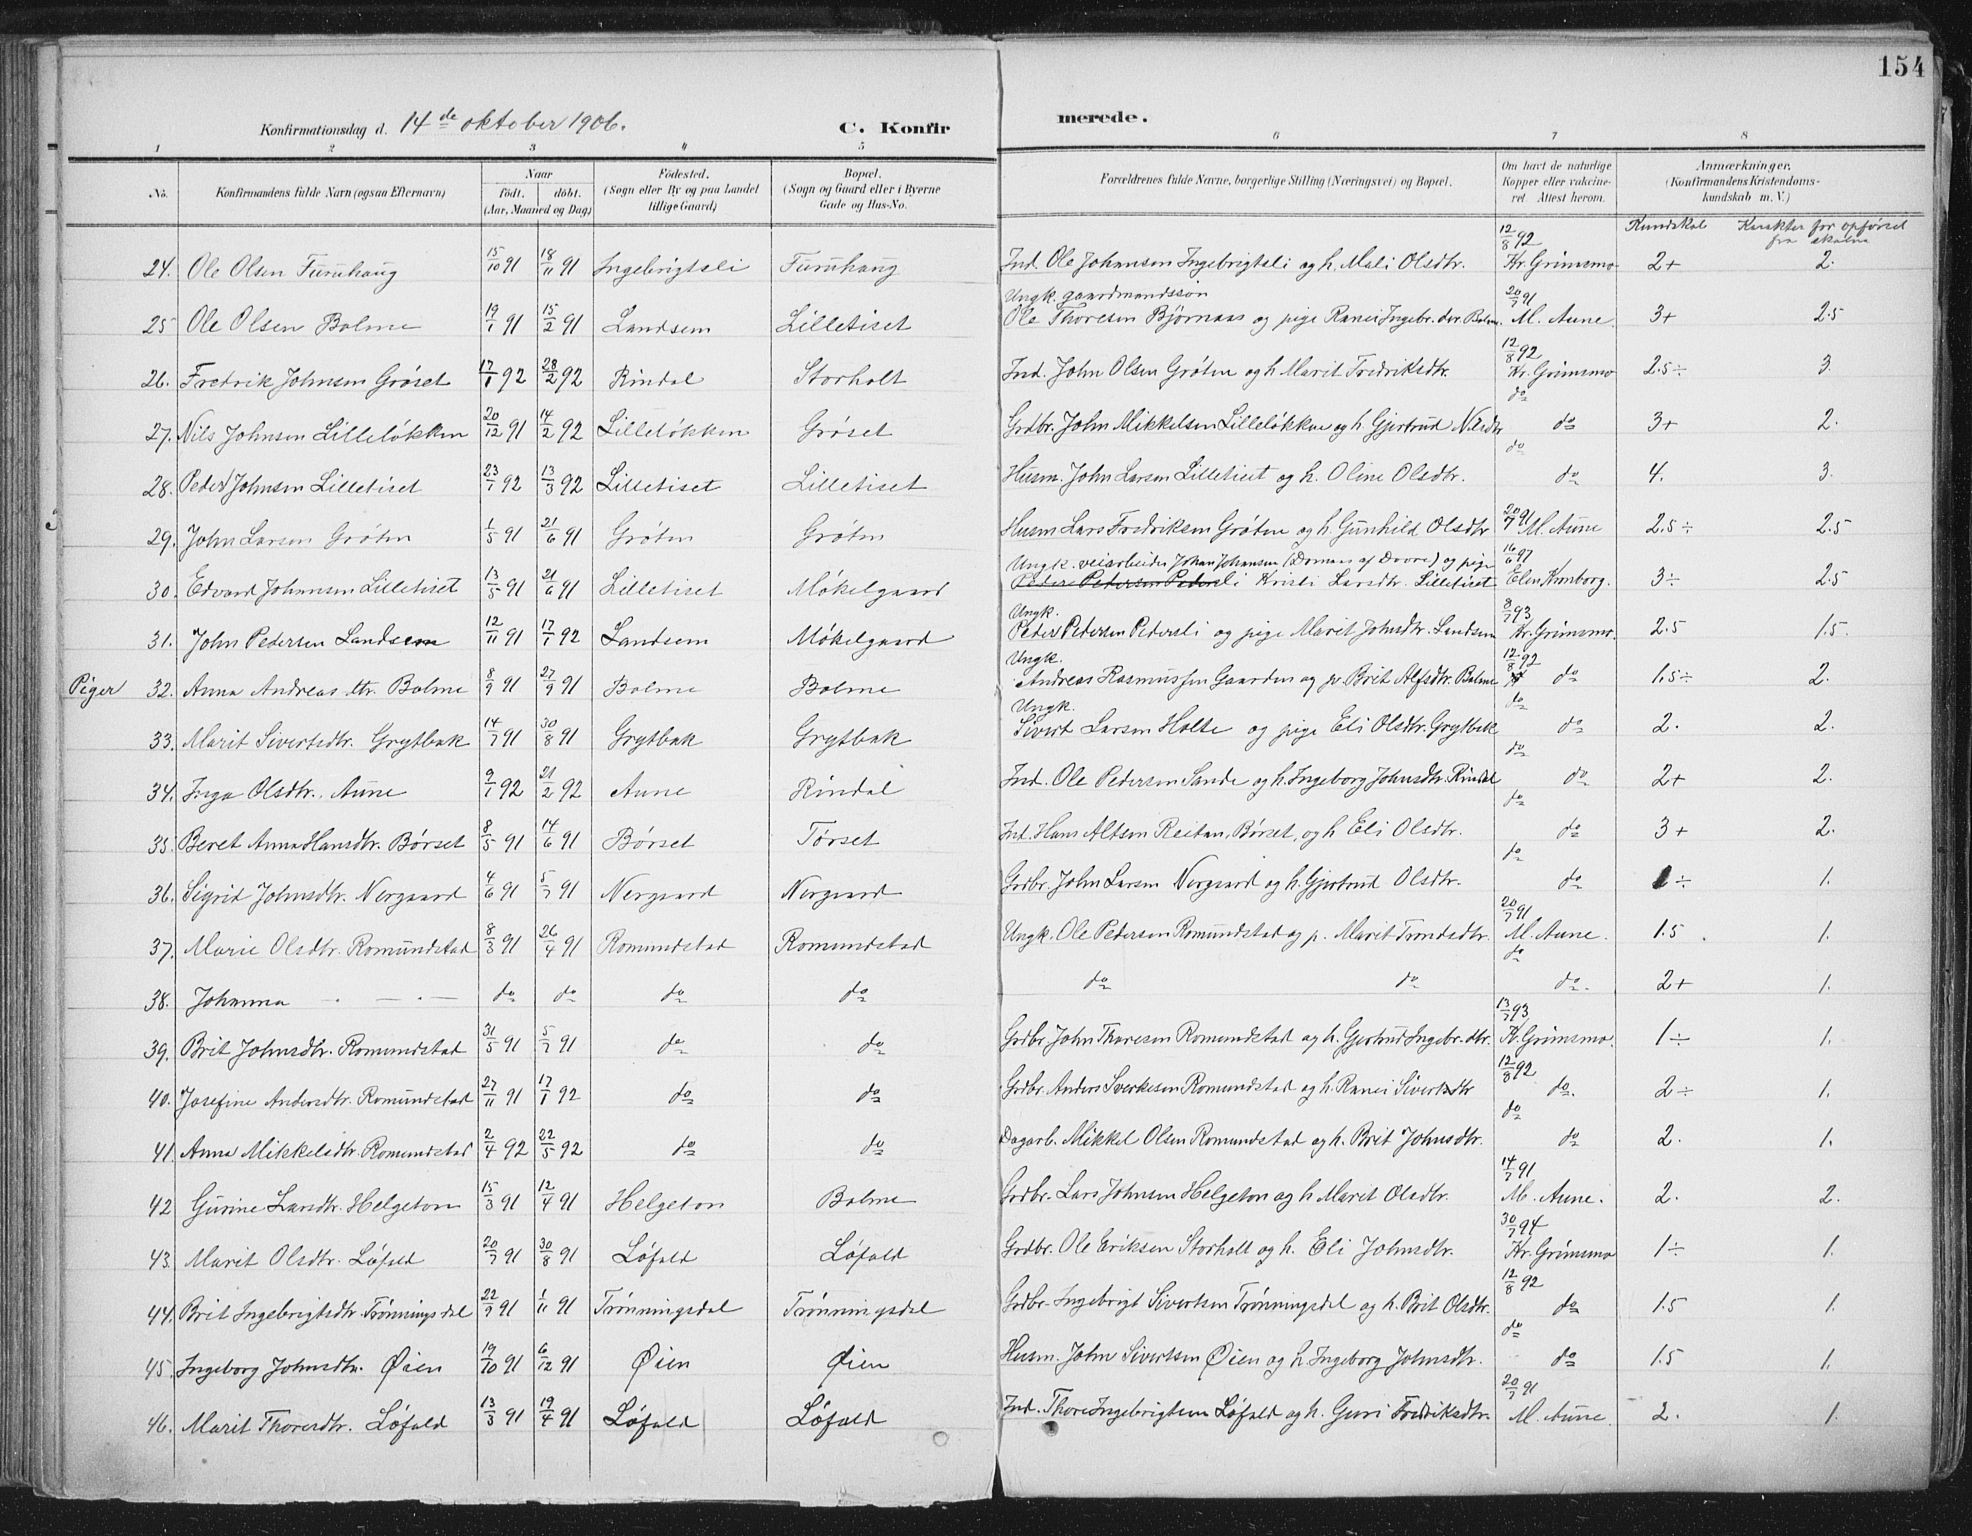 154
Konfirmationsdag d. 14de oktober 1906. C. Konfirmerede.
1 2 3 4 5 6 7 8
No. Konfirmandens fulde Navn (ogsaa Efternavn) Naar født. døbt. (Aar, Maaned og Dag) Fødested. (Sogn eller By og paa Landet tillige Gaard) Bopæl. (Sogn og Gaard eller i Byerne Gade og Hus-No. Forældrenes fulde Navne, borgerlige Stilling (Næringsvei) og Bopæl. Om havt de naturlige Kopper eller vakcineret. Attest herom. Anmærkninger. (Konfirmandens Kristendomskundskab m. V.)
Kundskab Karakter for opførsel fra skolen
24. Ole Olsen Furuhaug 15/10 91 18/11 91 Ingebrigtsli Furuhaug Ind. Ole Johansen Ingebrigtsli og h. Mali Olsdtr. 12/8 92 Kr. Grimsmo 2+ 2.
25 Ole Olsen Bolme 19/1 91 15/2 91 Landsem Lilletiset Ungk. gaardmandssøn Ole Thoresen Bjørnaas og pige Ranei Ingebr. dtr. Bolme 20/7 91 M. Aune. 3+ 2.5
26. Fredrik Johnsen Grøset 17/1 92 28/2 92 Rindal Storholt Ind. John Olsen Grøten og h Marit Fredriksdtr. 12/8 92 Kr. Grimsmo 2.5÷ 3.
27. Nils Johnsen Lilleløkken 20/12 91 14/2 92 Lilleløkken Grøset Grdbr. John Mikkelsen Lilleløkken og h Gjertrud Nilsdtr do do 3+ 2.
28. Peder Johnsen Lilletiset 23/1 92 13/3 92 Lilletiset Lilletiset Husm. John Larsen Lilletiset og h. Oline Olsdtr. do do 4. 3.
29. John Larsen Grøten 1/5 91 21/6 91 Grøten Grøten Husm Lars Fredriksen Grøten og h Gunhild Olsdtr 20/7 91 M. Aune 2.5÷ 2.5
30. Edvard Johansen Lilletiset 13/5 91 21/6 91 Lilletiset Møkelgaard Ungk. veiarbeider Johan Johansen (Domaas af Dovre) og pige Peder Pedersen Pedersli Kristi Larsdtr. Lilletiset 16/6 97 Elen Kornborg. 3÷ 2.5
31. John Pedersen Landsem 12/11 91 17/1 92 Landsem Møkelgaard Ungk. Peder Pedersen Pedersli og pige Marit Johnsdtr. Landsem 8/7 93 Kr. Grimsmo. 2.5 1.5.
Piger 32. Anna Andreas dtr. Bolme 8/9 91 27/9 91 Bolme Bolme Ungk. Andreas Rasmussen Gaarden og p. Brit Alfsdtr. Bolme 12/8 92 do 1.5÷ 2.
33. Marit Sivertsdtr. Grytbak 14/7 91 30/8 91 Grytbak Grytbak Ungk. Sivert Larsen Holte og pige Eli Olsdtr. Grytbak do do 2. 2.
34. Inga Olsdtr. Aune 9/1 92 21/2 92 Aune Rindal Ind. Ole Pedersen Sande og h. Ingeborg Johnsdtr. Rindal do do 2+ 2.
35. Beret Anna Hansdtr. Børset 8/5 91 14/6 91 Børset Tørset Ind. Hans Altsen Reitan, Børset, og h Eli Olsdtr. do do 3+ 2.
36. Sigrid Johnsdtr. Nergaard 4/6 91 5/7 91 Nergaard Nergaard Grdbr. John Larsen Nergaard og h. Gjertrud Olsdtr. do do 1÷ 1.
37. Marie Olsdtr. Romundstad 8/3 91 26/4 91 Romundstad Romundstad Ungk. Ole Pedersen Romundstad og p. Marit Trondsdtr. 20/7 91 M. Aune. 1.5 1.
38. Johanna — - — - — do do do do do do do do. 2+ 1.
39. Brit Johnsdtr. Romundstad 31/5 91 5/7 91 do do Grdbr John Thoresen Romundstad og h. Gjertrud Ingebr. dtr. 13/7 93 K. Grimsmo. 1÷ 1.
40. Josefine Andersdtr. Romundstad 27/11 91 17/1 92 do do Grdbr. Anders Sverkesen Romundstad og h. Ranei Sivertsdtr 12/8 92 do. 2÷ 1.
41. Anna Mikkelsdtr. Romundstad 2/4 92 22/5 92 do do Dagarb. Mikkel Olsen Romundstad og h. Brit Johnsdtr. do do 2. 1.
42 Gurine Larsdtr. Helgeton 15/3 91 12/4 91 Helgeton Bolme Grdbr. Lars Johnsen Helgeton og h. Marit Olsdtr. 14/7 91 M. Aune. 2. 2.
43. Marit Olsdtr. Løfald 20/7 91 30/8 91 Løfald Løfald Grdbr. Ole Eriksen Storholt og h. Eli Johnsdtr. 30/7 94 Kr. Grimsmo 1÷ 1.
44. Brit Ingebrigtsdtr. Trønningsdal 22/9 91 1/11 91 Trønningsdal Trønningsdal Grdbr. Ingebrigt Sivertsen Trønningsdal og h. Brit Olsdtr. 12/8 92 do 1.5 1.
45. Ingeborg Johnsdtr. Øien 19/10 91 6/12 91 Øien Øien Husm. John Sivertsen Øien og h. Ingeborg Johnsdtr. do do 1.5 1.
46. Marit Thoresdtr. Løfald 13/3 91 19/4 91 Løfald Løfald Ind. Thore Ingebrigtsen Løfald og h. Guri Fredriksdtr. 20/7 91 M. Aune. 2. 1.